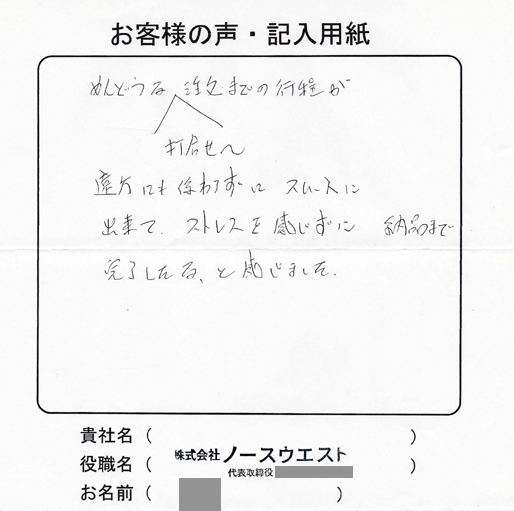 お客様の声・記入用紙
めんどうな 注文までの行程が
打合せへ
遠方にも係わらずに スムースに
出来て、ストレスを感じずに 納品まで
完了したな、と感じました。
貴社名（ ）
役職名（ 株式会社ノースウエスト ）
代表取締役
お名前（ ）